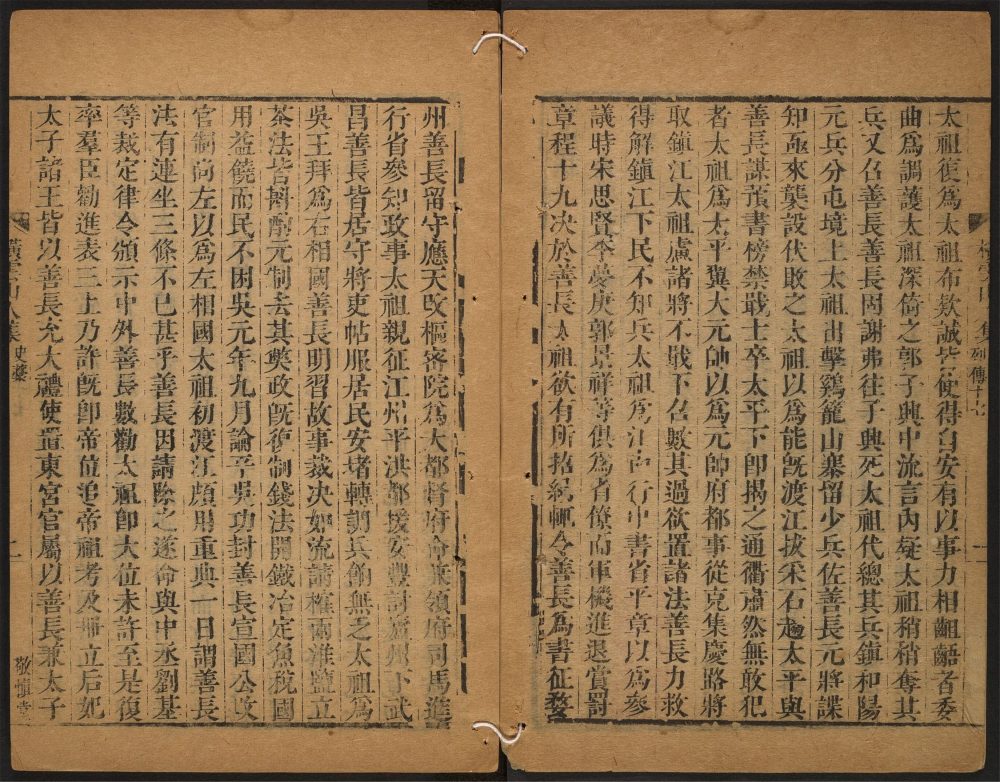 太祖復爲太祖布欵誠皆使得自安有以事力相齟齬者委
曲爲調護太祖深倚之郭子興中流言內疑太祖稍稍奪其
兵又召善長善長固謝弗往子興死太祖代總其兵鎮和陽
元兵分屯境上太祖出擊鷄籠山寨留少兵佐善長元將諜
知亟來襲設伏敗之太祖以爲能旣渡江拔采石趨太平與
善長謀預書榜禁戢士卒太平下卽揭之通衢肅然無敢犯
者太祖爲太平翼大元帥以爲元帥府都事從克集慶路將
取鎮江太祖慮諸將不戢下召數其過欲置諸法善長力救
得解鎮江下民不知兵太祖爲江南行中書省平章以爲參
議時宋思賢李夢庚郭景祥等俱爲省僚而軍機進退賞罰
章程十九决於善長太祖欲有所招納輒令善長爲書征婺
州善長留守應天改樞密院爲大都督府命兼領府司馬進
行省參知政事太祖親征江州平洪都援安豐討廬州下武
昌善長皆居守將吏帖服居民安堵轉調兵餉無乏太祖爲
吳王拜爲右相國善長明習故事裁决如流請榷兩淮鹽立
茶法皆斟酌元制去其獘政旣復制錢法開鐵冶定魚稅國
用益饒而民不困吳元年九月論平吳功封善長宣國公改
官制尚左以爲左相國太祖初渡江頗用重典一日謂善長
法有連坐三條不已甚乎善長因請除之遂命與中丞劉基
等裁定律令頒示中外善長數勸太祖卽大位未許至是復
率羣臣勸進表三上乃許旣卽帝位追帝祖考及冊立后妃
太子諸王皆以善長充大禮使置東宮官屬以善長兼太子
列傳
史藁
二
敬愼堂